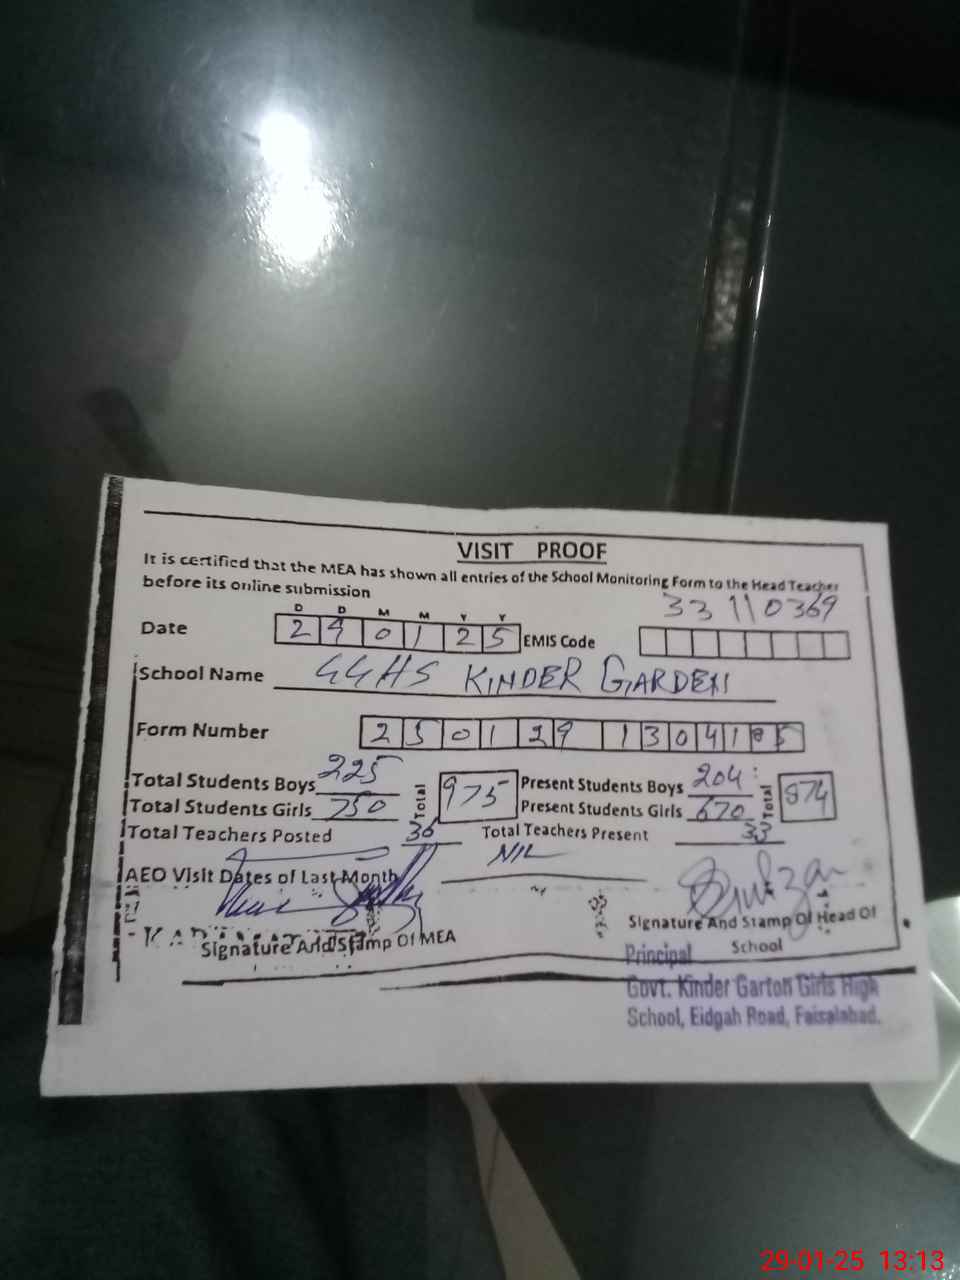 VISIT PROOF
It is certified that the MEA has shown all entries of the School Monitoring Form to the Head Teacher
before its online submission
33110369
D D M M Y Y
Date 29 01 25 EMIS Code
School Name GGHS KINDER GARDEN
Form Number 250129 13041 5
Total Students Boys 225 Total 975 Present Students Boys 204 Total 874
Total Students Girls 750 Present Students Girls 670
Total Teachers Posted 36 Total Teachers Present 33
AEO Visit Dates of Last Month NIL
Signature And Stamp Of MEA
Signature And Stamp Of Head Of
School
Principal
Govt. Kinder Garton Girls High
School, Eidgah Road, Faisalabad.
29-01-25 13:13